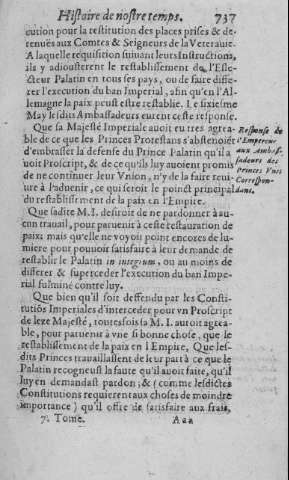 Histoire de nostre temps. 737
cution pour la restitution des places prises & de-
tenuës aux Comtes & Seigneurs de la Veteravie.
A laquelle requisition suiuant leurs Instructions,
ils y adiousterent le restablissement de l'Ele-
cteur Palatin en tous ses pays, ou de faire diffe-
rer l'execution du ban Imperial, afin qu'en l'Al-
lemagne la paix peust estre restablie. Le sixiesme
May lesdits Ambassadeurs eurent ceste response.
Que sa Majesté Imperiale auoit eu tres agrea-
ble de ce que les Princes Protestans s'abstenoiẽt
d'embrasser la defense du Prince Palatin qu'il a
uoit Proscript, & de ce qu'ils luy auoient promis
de ne continuer leur Vnion, n'y de la faire reui-
ure à l'aduenir, ce qui seroit le poinct principal
du restablissement de la paix en l'Empire.
Response de
l'Empereur
aux Ambas-
sadeurs des
Princes Vnis
Correspon-
dans.
Que sadite M. I. desiroit de ne pardonner à au-
cun trauail, pour paruenir à ceste restauration de
paix: mais qu'elle ne voyoit point encores de lu-
miere pour pouuoir satisfaire à leur demande de
restablir le Palatin in integrum, ou au moins de
differer & superceder l'execution du ban Impe-
rial fulminé contre luy.
Que bien qu'il soit deffendu par les Consti-
tutiõs Imperiales d'interceder pour vn Proscript
de leze Majesté, toutesfois sa M. I. auroit agrea-
ble, pour paruenir à vne si bonne chose, que le
restablissement de la paix en l'Empire, Que les-
dits Princes trauaillassent de leur part à ce que le
Palatin recogneust la faute qu'il auoit faite, qu'il
luy en demandast pardon; & (comme lesdictes
Constitutions requierent aux choses de moindre
importance) qu'il offre de satisfaire aux frais,
7. Tome. Aaa